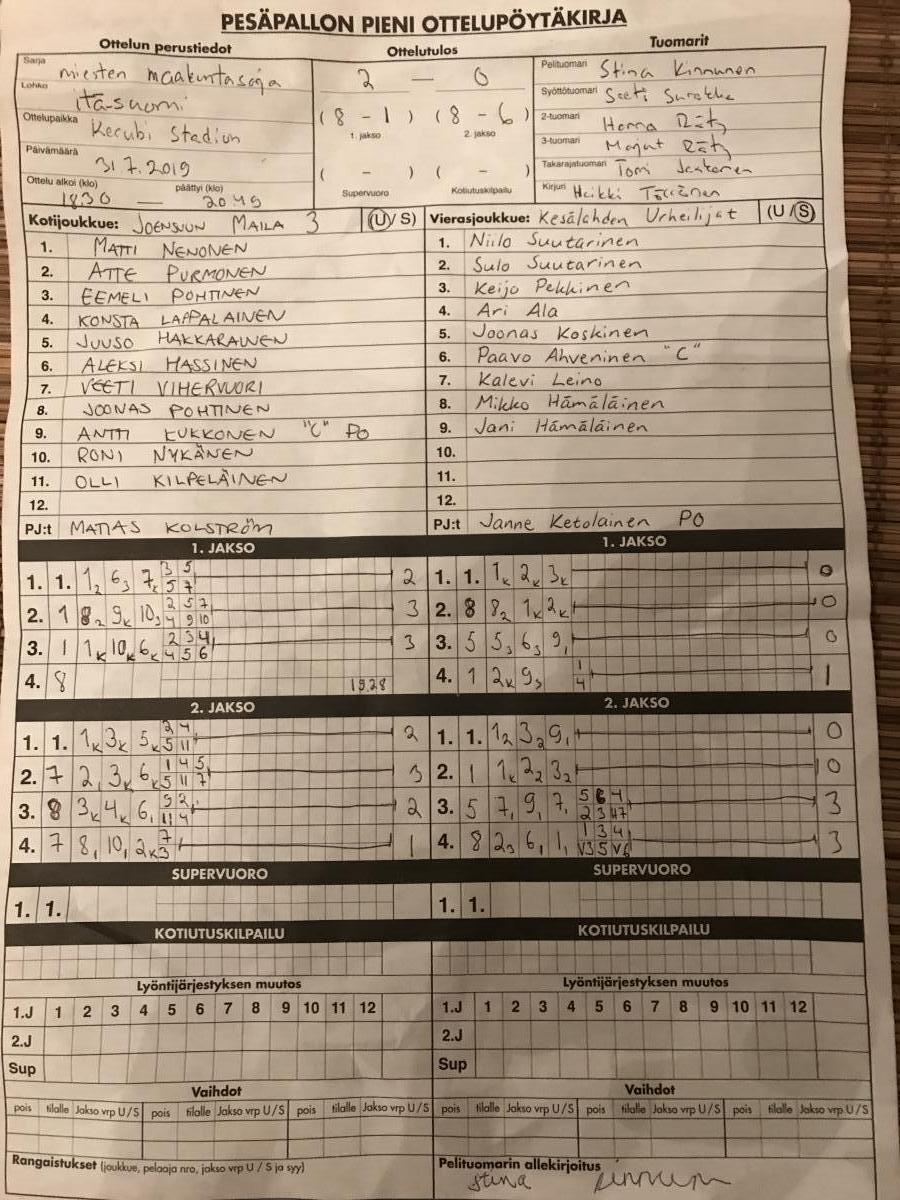 PESÄPALLON PIENI OTTELUPÖYTÄKIRJA
Ottelun perustiedot
Sarja miesten maakuntasarja
Lohko Itä-Suomi
Ottelupaikka Kerubi Stadion
Päivämäärä 31.7.2019
Ottelu alkoi (klo) päättyi (klo)
1830 — 2049
Ottelutulos
2 — 0
(8 - 1) (8 - 6)
1. jakso 2. jakso
( - ) ( - )
Supervuoro Kotiutuskilpailu
Tuomarit
Pelituomari Stina Kinnunen
Syöttötuomari
2-tuomari Hanna Räty
3-tuomari Rätz
Takarajatuomari Tomi
Kirjuri Heikki
Kotijoukkue: JOENSUUN MAILA 3 (U/S)
1. MATTI NENONEN
2. ATTE PURMONEN
3. EEMELI POHTINEN
4. KONSTA LAPPALAINEN
5. JUUSO HAKKARAINEN
6. ALEKSI HASSINEN
7. VEETI VIHERVUORI
8. JOONAS POHTINEN
9. ANTTI KUKKONEN "C" PO
10. RONI NYKÄNEN
11. OLLI KILPELÄINEN
12.
PJ:t MATIAS KOLSTRÖM
Vierasjoukkue: Kesälahden Urheilijat (U/S)
1. Niilo Suutarinen
2. Sulo Suutarinen
3. Keijo Pekkinen
4. Ari Ala
5. Joonas Koskinen
6. Paavo Ahveninen "C"
7. Kalevi Leino
8. Mikko Hämäläinen
9. Jani Hämäläinen
10.
11.
12.
PJ:t Janne Ketolainen PO
1. JAKSO
1. 1. 1₂ 6₃ 7ₖ 3 5 2
5 7
2. 1 8₂ 9ₖ 10₃ 2 5 7 3
4 9 10
3. 1 1ₖ 10ₖ 6ₖ 2 3 4 3
4 5 6
4. 8 19.28
2. JAKSO
1. 1. 1ₖ 3ₖ 5ₖ 2 4 2
5 11
2. 7 2, 3ₖ 6ₖ 1 4 5 3
5 11 7
3. 8 3ₖ 4ₖ 6, 5 2 2
11 4
4. 7 8, 10, 2ₖ 7 1
3
SUPERVUORO
1. 1.
KOTIUTUSKILPAILU
Lyöntijärjestyksen muutos
1.J 1 2 3 4 5 6 7 8 9 10 11 12
2.J
Sup
Vaihdot
pois tilalle Jakso vrp U/S pois tilalle Jakso vrp U/S pois tilalle Jakso vrp U/S
Rangaistukset (joukkue, pelaaja nro, jakso vrp U / S ja syy)
1. JAKSO
1. 1. 1ₖ 2ₖ 3ₖ 0
2. 8 8₂ 1ₖ 2ₖ 0
3. 5 5₃ 6₃ 9, 0
4. 1 2ₖ 9₃ 1 1
4
2. JAKSO
1. 1. 1₂ 3₂ 9, 0
2. 1 1ₖ 2₂ 3₂ 0
3. 5 7, 9, 7, 3
4. 8 2₃ 6, 1, 1 3 4 3
V3 5 V6
SUPERVUORO
1. 1.
KOTIUTUSKILPAILU
Lyöntijärjestyksen muutos
1.J 1 2 3 4 5 6 7 8 9 10 11 12
2.J
Sup
Vaihdot
pois tilalle Jakso vrp U/S pois tilalle Jakso vrp U/S pois tilalle Jakso vrp U/S
Pelituomarin allekirjoitus
Stina Kinnunen